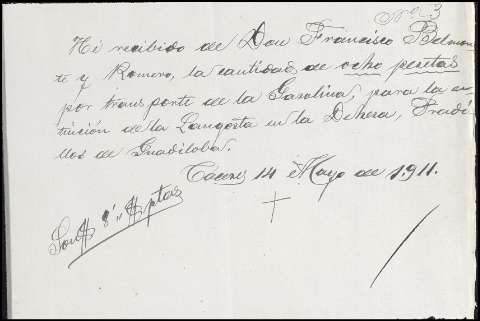 Nº 3
He recibido de Don Francisco Belmon-
te y Romero, la cantidad de ocho pesetas
por transporte de la Gasolina, para la ex-
tinción de la Langosta en la Dehesa, Fradi-
llos de Guadiloba.
Cáceres 14 Mayo de 1.911.
Son 8'' ptas